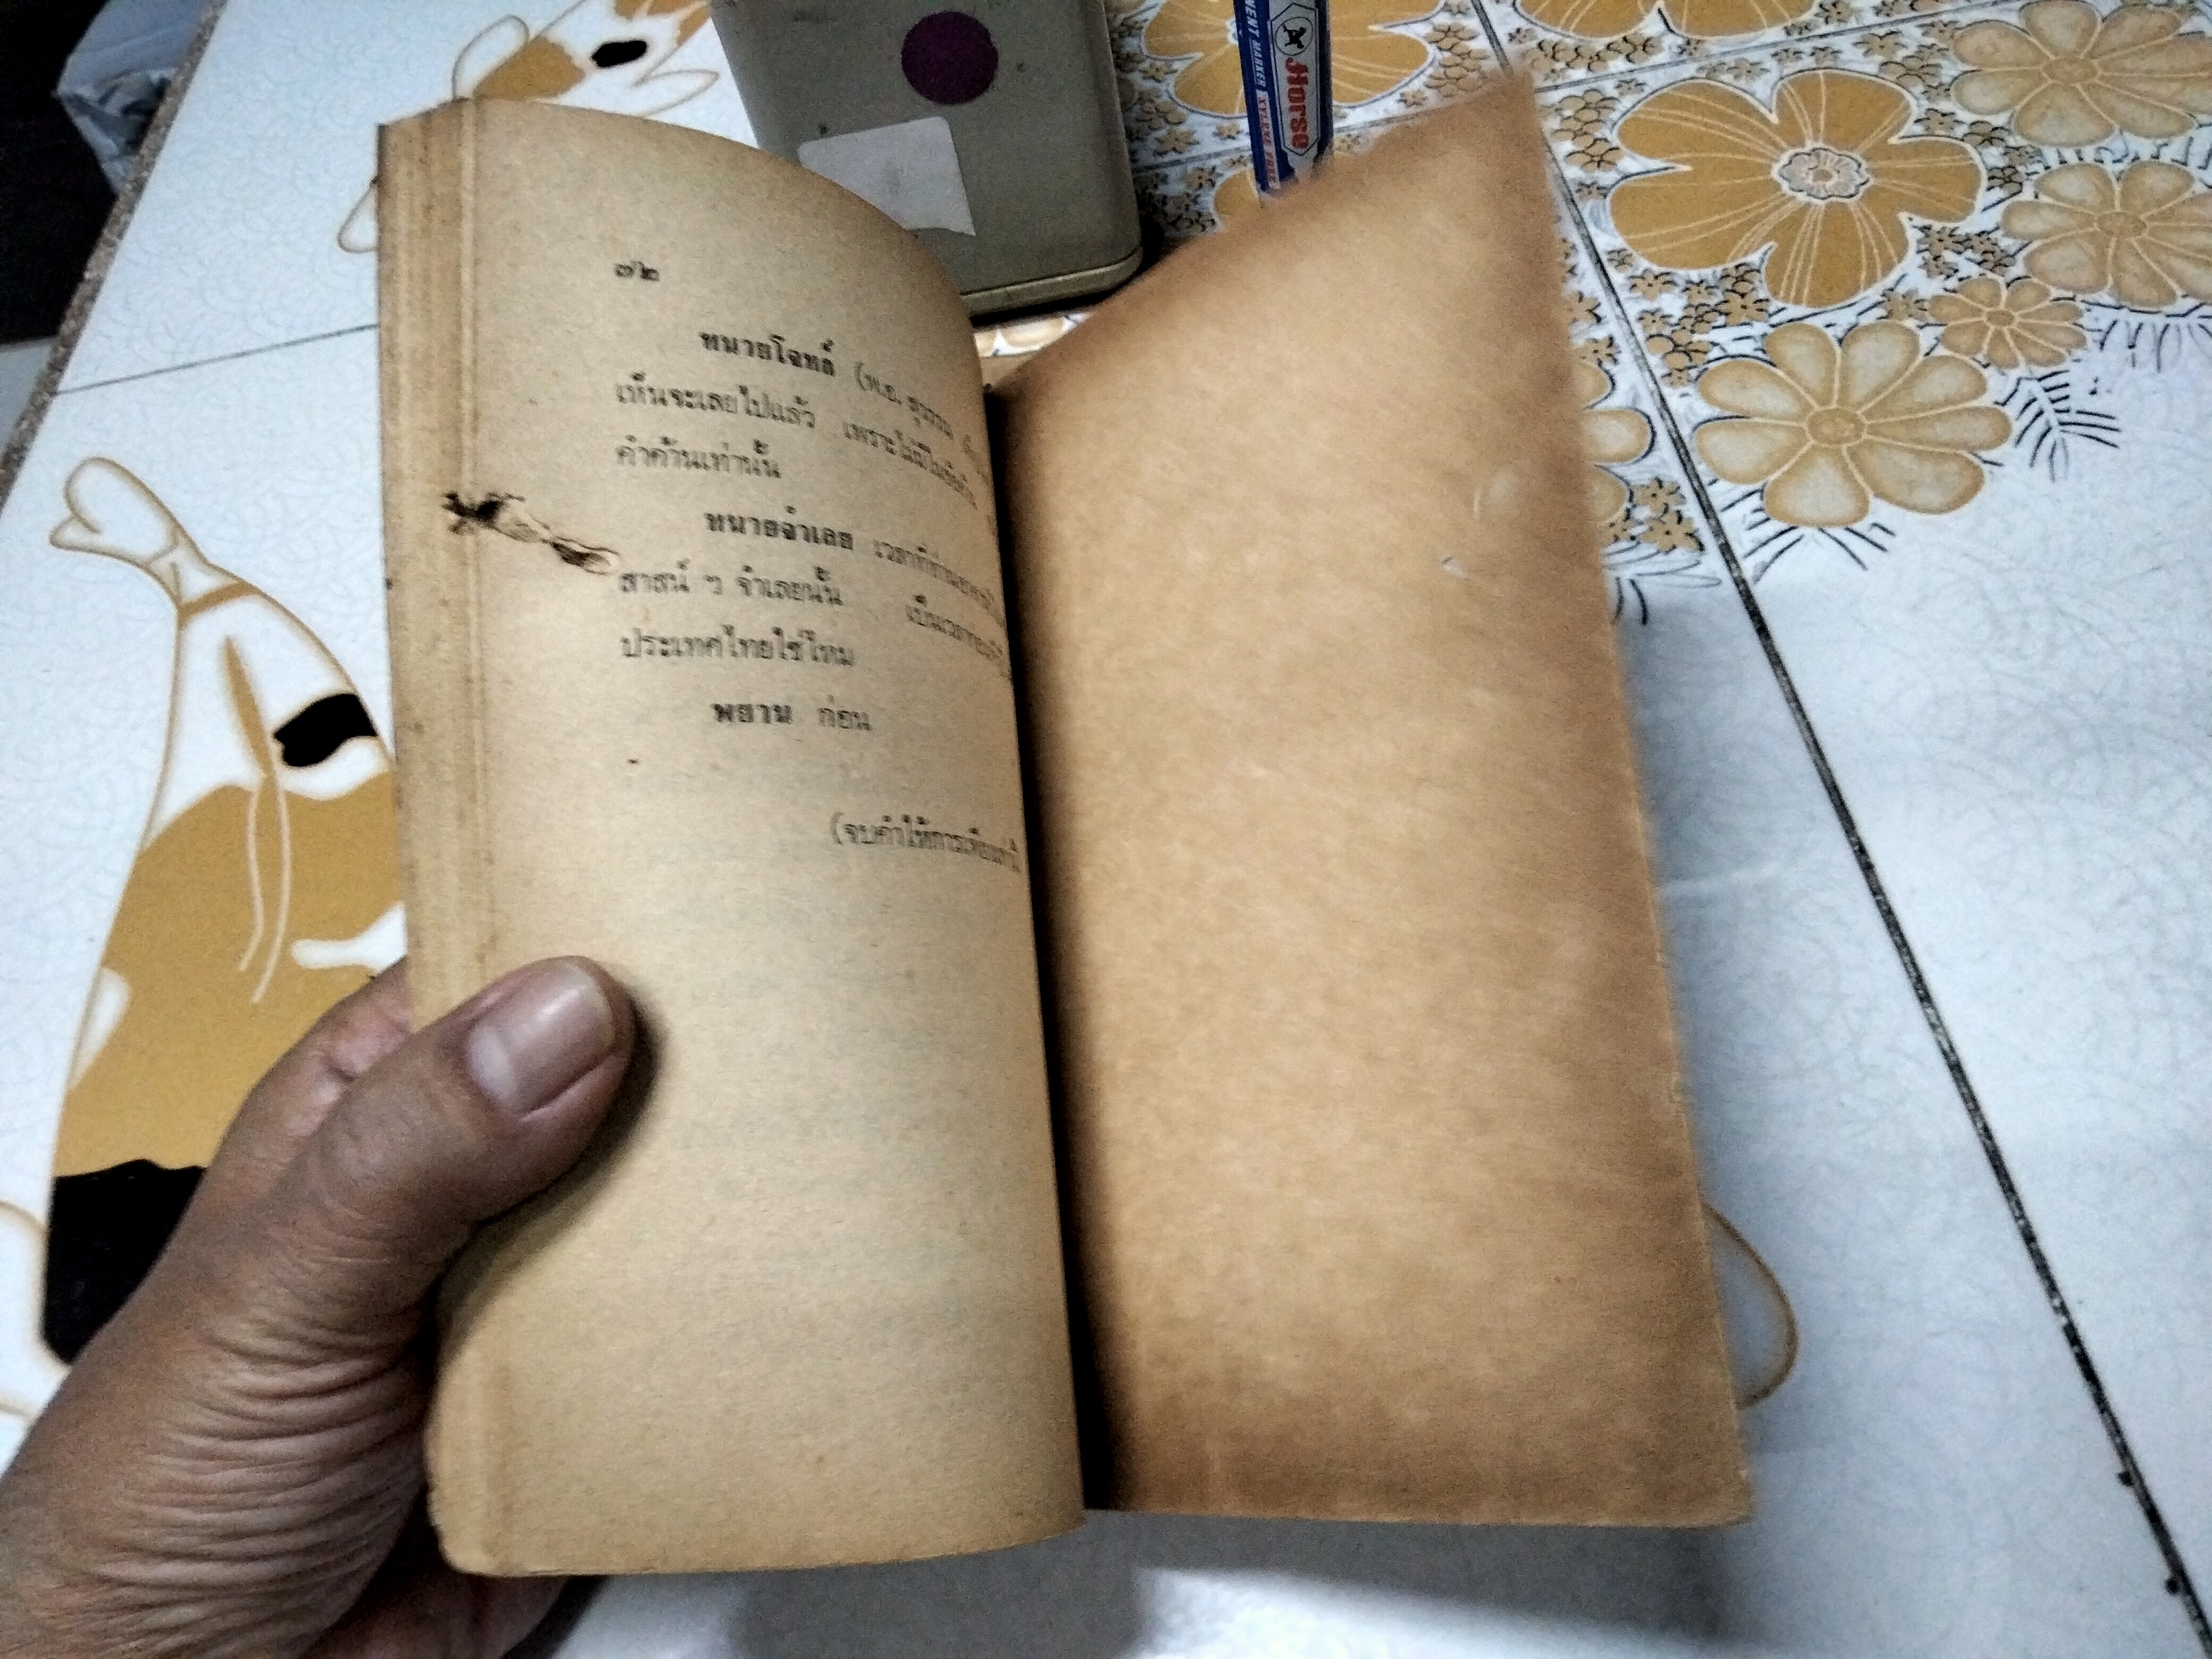 ๗๒
ทนายโจทล์ (พ.อ. สุวรรณ
เห็นจะเลยไปแล้ว เพราะไม่มีในข้อ
คำค้านเท่านั้น
ทนายจำเลย เวลาที่ท่าน
สาสน์ ๆ จำเลยนั้น เป็นเวลาก่อน
ประเทศไทยใช่ไหม
พยาน ก่อน
(จบคำให้การเพียงเท่านี้
Horse
PERMANENT MARKER